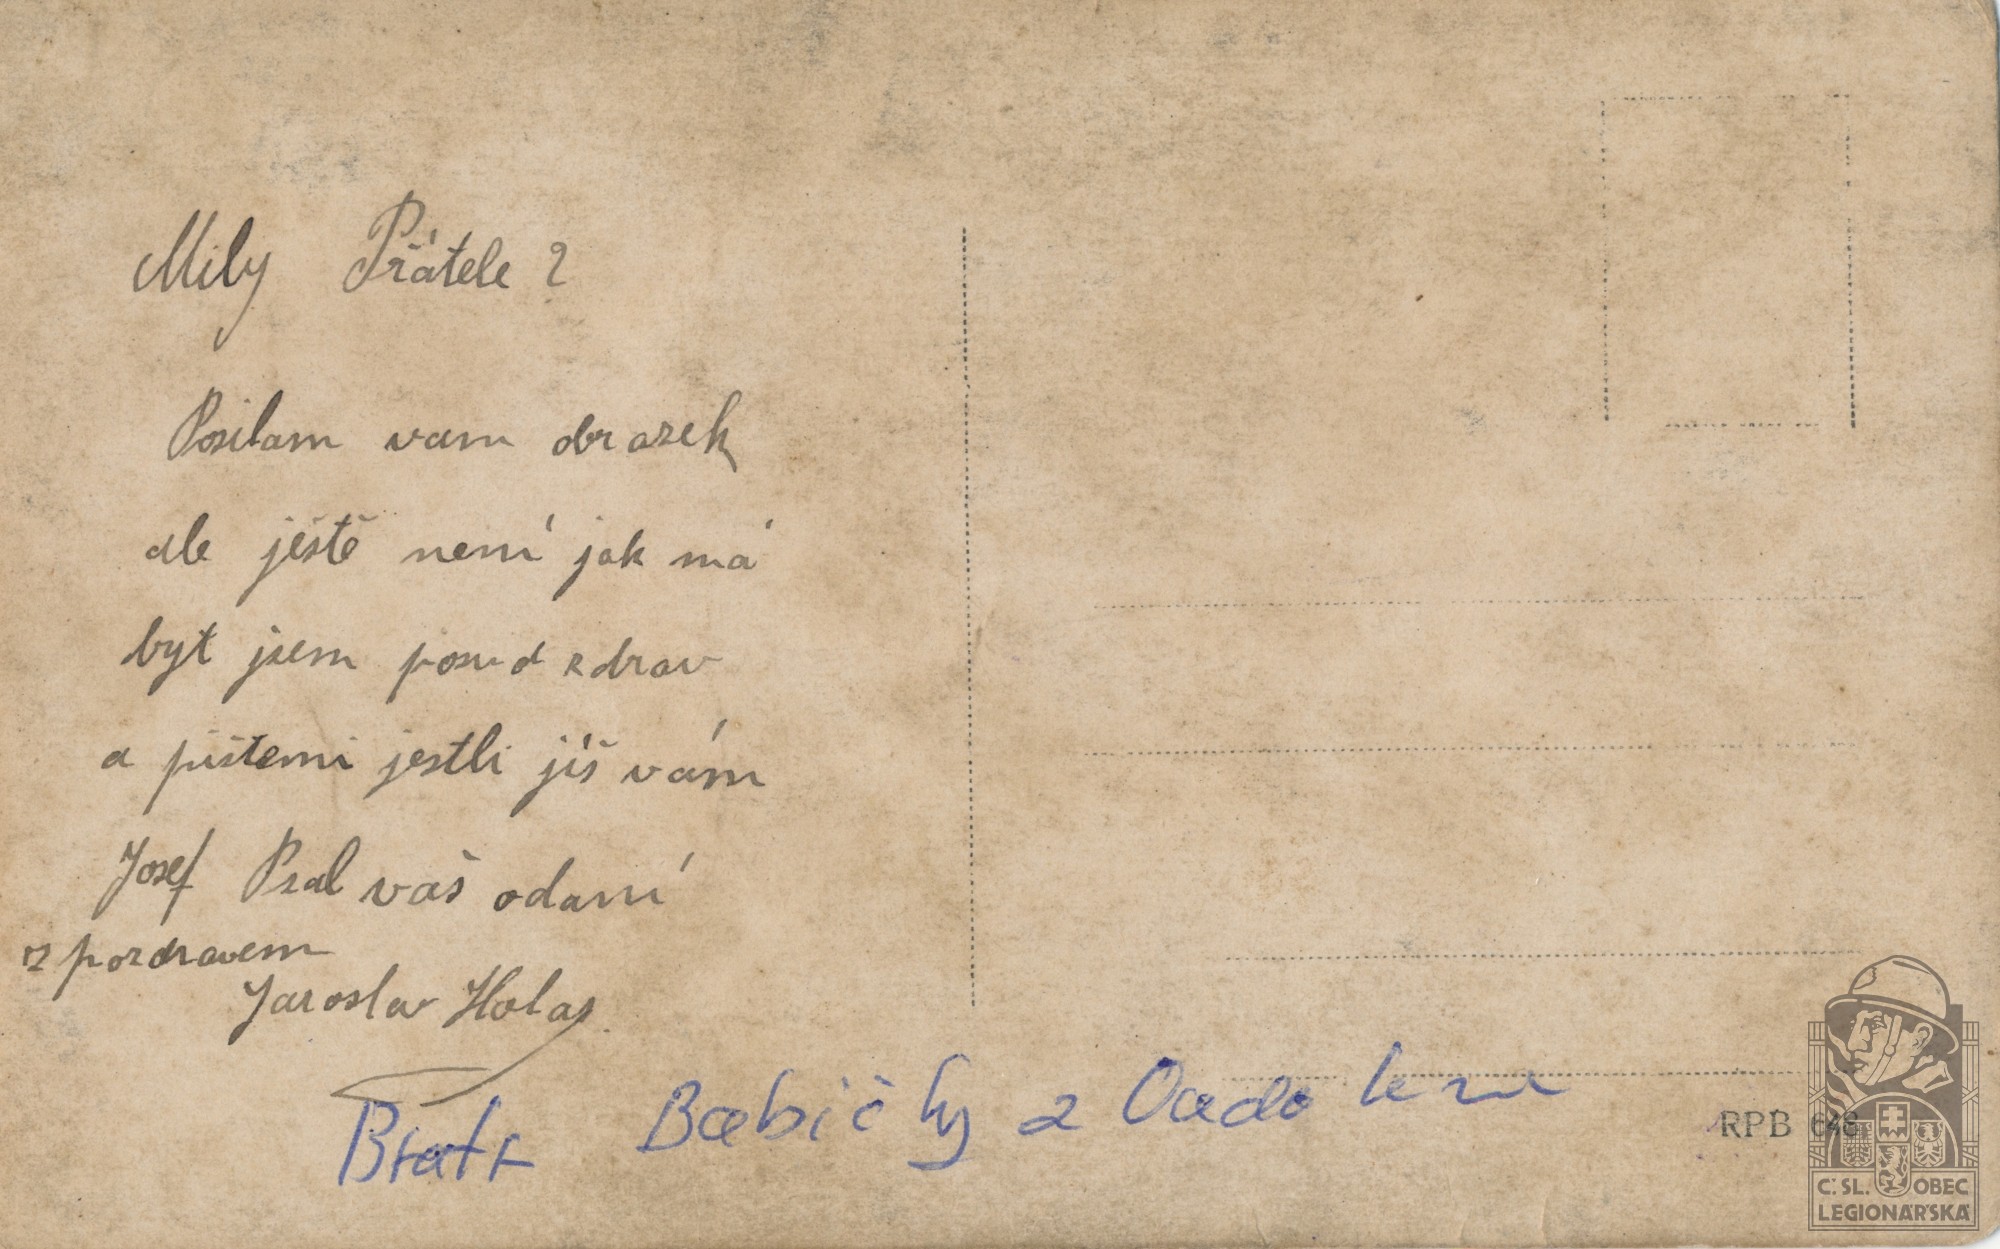 Mily Přátele ?
Posilam vam obrazek
ale ještě není jak má
byt jsem posud zdrav
a pištemi jestli jíš vám
Josef Psal váš odaní
z pozdravem
Jaroslav Holas
Bratr Babičky z
RPB 648
Č. SL. OBEC
LEGIONÁŘSKÁ